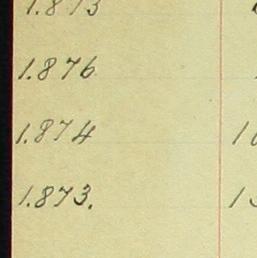 1.873
1.876
1.874
1.873.